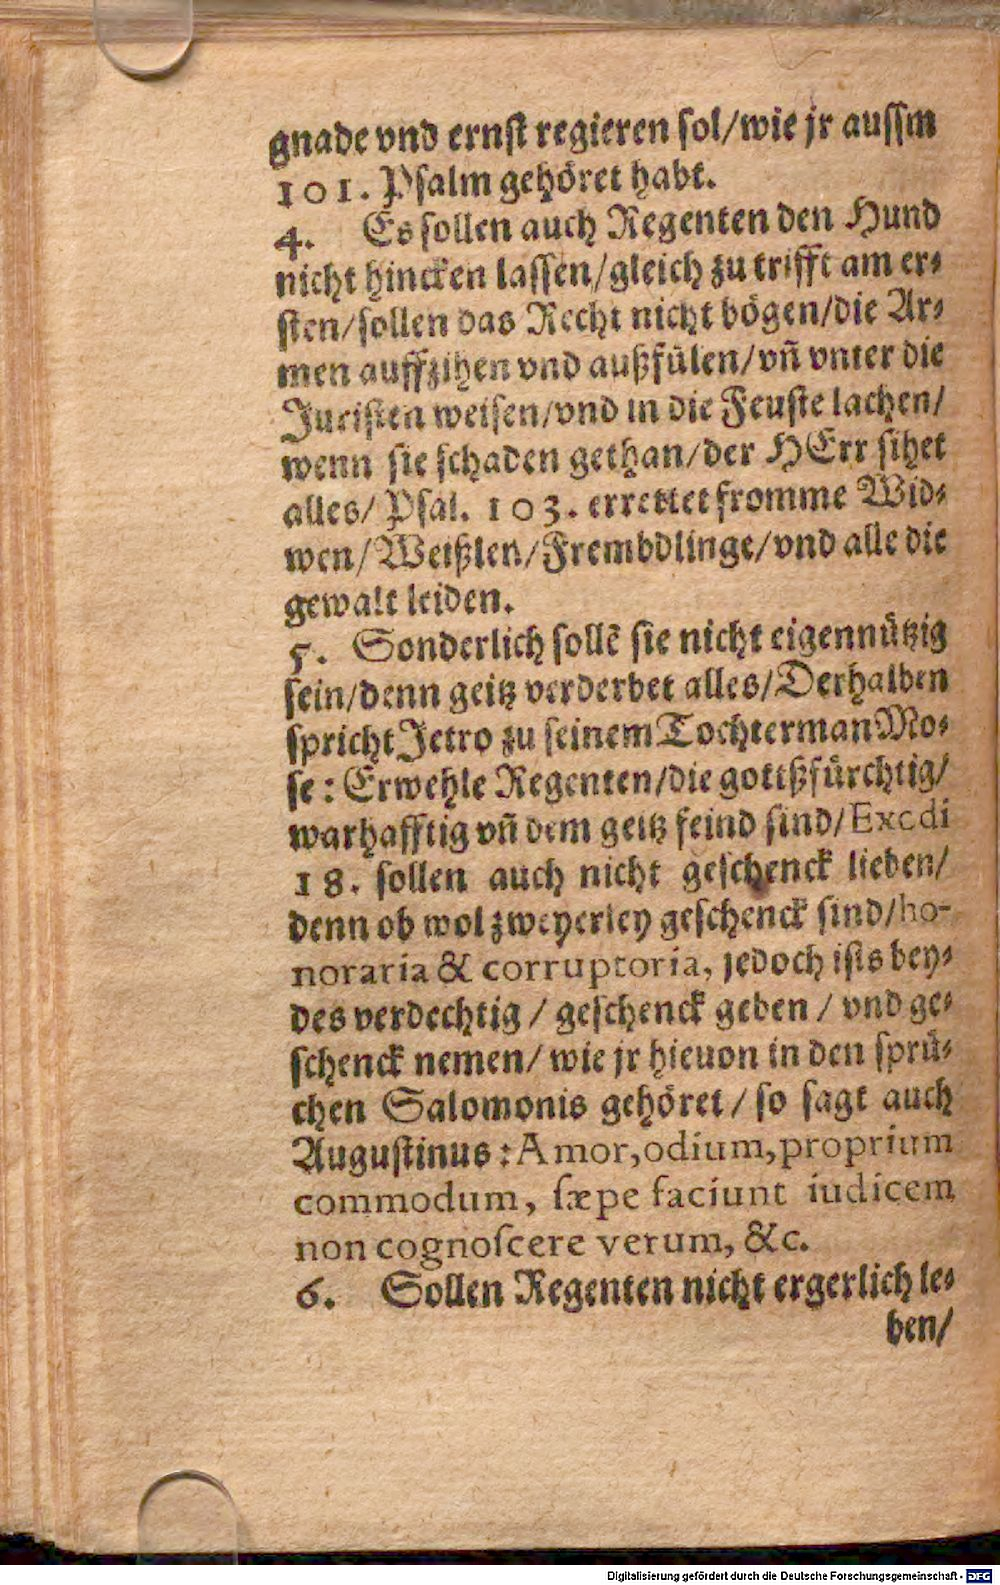 gnade vnd ernſt regieren ſol/wie jr auſſm
101. Pſalm gehöret habt.
4. Es ſollen auch Regenten den Hund
nicht hincken laſſen/gleich zu trifft am er⸗
ſten/ſollen das Recht nicht bögen/die Ar⸗
men auffzihen vnd außfülen/vñ vnter die
Juriſten weiſen/vnd in die Feuſte lachen/
wenn ſie ſchaden gethan/der HErr ſihet
alles/ Pſal. 103. errettet fromme Wid⸗
wen/Weißlen/Frembdlinge/vnd alle die
gewalt leiden.
5. Sonderlich ſollẽ ſie nicht eigennützig
ſein/denn geitz verderbet alles/Derhalben
ſpricht Jetro zu ſeinem Tochterman Mo⸗
ſe: Erwehle Regenten/die gottßfürchtig/
warhafftig vñ dem geitz feind ſind/Exodi
18. ſollen auch nicht geſchenck lieben/
denn ob wol zweyerley geſchenck ſind/ho-
noraria & corruptoria, jedoch iſts bey⸗
des verdechtig / geſchenck geben / vnd ge⸗
ſchenck nemen/ wie jr hieuon in den ſprü⸗
chen Salomonis gehöret / ſo ſagt auch
Auguſtinus: Amor, odium, proprium
commodum, ſæpe faciunt iudicem
non cognoſcere verum, &c.
6. Sollen Regenten nicht ergerlich le⸗
ben/
Digitalisierung gefördert durch die Deutsche Forschungsgemeinschaft - DFG